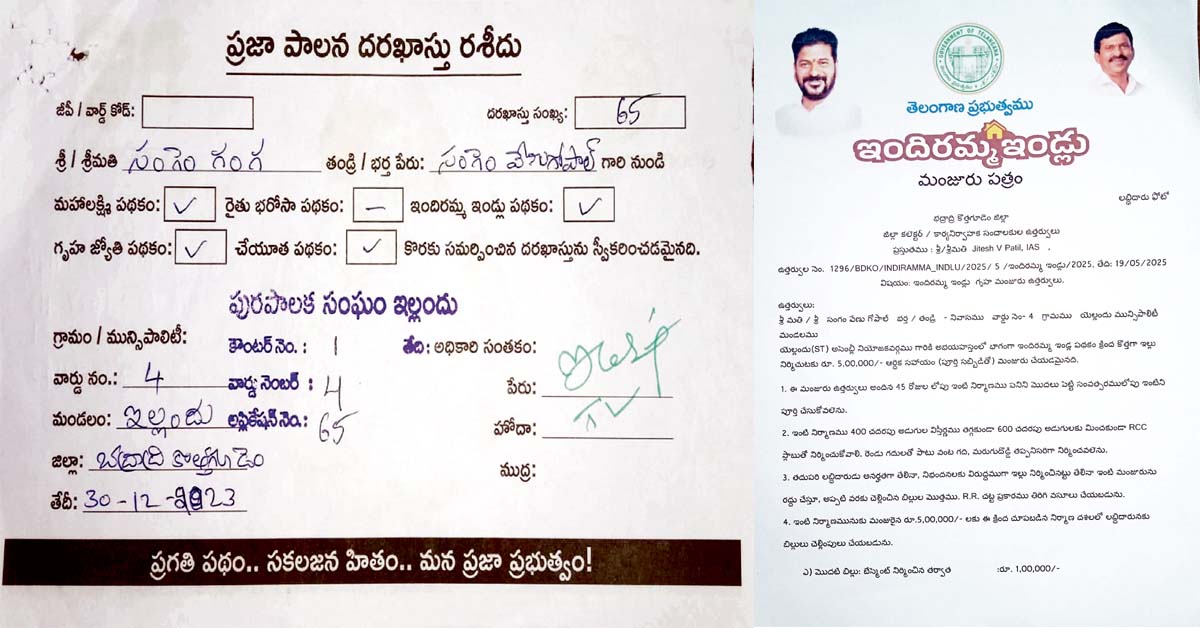 ప్రజా పాలన దరఖాస్తు రశీదు
జీపీ / వార్డ్ కోడ్:
దరఖాస్తు సంఖ్య: 65
శ్రీ / శ్రీమతి సంగెం గంగ తండ్రి / భర్త పేరు: సంగెం వేణుగోపాల్ గారి నుండి
మహాలక్ష్మి పథకం: ✓ రైతు భరోసా పథకం: – ఇందిరమ్మ ఇండ్లు పథకం: ✓
గృహ జ్యోతి పథకం: ✓ చేయూత పథకం: ✓ కొరకు సమర్పించిన దరఖాస్తును స్వీకరించడమైనది.
పురపాలక సంఘం ఇల్లందు
గ్రామం / మున్సిపాలిటీ:
కౌంటర్ నెం. : 1
తేది : అధికారి సంతకం:
వార్డు నం.: 4
వార్డు నెంబర్ : 4
పేరు:
మండలం: ఇల్లందు
అప్లికేషన్ నెం.: 65
హోదా:
జిల్లా: భద్రాద్రి కొత్తగూడెం
ముద్ర:
తేదీ: 30-12-2023
ప్రగతి పథం.. సకలజన హితం.. మన ప్రజా ప్రభుత్వం!
GOVERNMENT OF TELANGANA
తెలంగాణ ప్రభుత్వము
ఇందిరమ్మ ఇండ్లు
మంజూరు పత్రం
లబ్ధిదారు ఫోటో
భద్రాద్రి కొత్తగూడెం జిల్లా
జిల్లా కలెక్టర్ / కార్యనిర్వాహక సంచాలకుల ఉత్తర్వులు
ప్రస్తుతము : శ్రీ/శ్రీమతి Jitesh V Patil, IAS .
ఉత్తర్వుల నెం. 1296/BDKO/INDIRAMMA_INDLU/2025/ 5 /ఇందిరమ్మ ఇండ్లు/2025, తేది: 19/05/2025
విషయం: ఇందిరమ్మ ఇండ్లు గృహ మంజూరు ఉత్తర్వులు.
ఉత్తర్వులు:
శ్రీ మతి / శ్రీ సంగం వేణు గోపాల్ భర్త / తండ్రి - నివాసము వార్డు నం- 4 గ్రామము యెల్లందు మున్సిపాలిటీ
మండలము
యెల్లందు(ST) అసెంబ్లీ నియోజకవర్గము గారికి అభయహస్తంలో భాగంగా ఇందిరమ్మ ఇండ్ల పథకం క్రింద కొత్తగా ఇల్లు
నిర్మించుటకు రూ. 5,00,000/- ఆర్థిక సహాయం (పూర్తి సబ్సిడీతో) మంజూరు చేయడమైనది.
1. ఈ మంజూరు ఉత్తర్వులు అందిన 45 రోజుల లోపు ఇంటి నిర్మాణము పనిని మొదలు పెట్టి సంవత్సరములోపు ఇంటిని
పూర్తి చేసుకోవలెను.
2. ఇంటి నిర్మాణము 400 చదరపు అడుగుల విస్తీర్ణము తగ్గకుండా 600 చదరపు అడుగులకు మించకుండా RCC
స్లాబుతో నిర్మించుకోవాలి. రెండు గదులతో పాటు వంట గది, మరుగుదొడ్డి తప్పనిసరిగా నిర్మించవలెను.
3. తదుపరి లబ్ధిదారుడు అనర్హతగా తేలినా, నిబంధనలకు విరుద్ధముగా ఇల్లు నిర్మించినట్లు తేలినా ఇంటి మంజూరును
రద్దు చేస్తూ, అప్పటి వరకు చెల్లించిన బిల్లుల మొత్తము. R.R. చట్ట ప్రకారము తిరిగి వసూలు చేయబడును.
4. ఇంటి నిర్మాణమునుకు మంజూరైన రూ.5,00,000/- లకు ఈ క్రింద చూపబడిన నిర్మాణ దశలలో లబ్ధిదారునకు
బిల్లులు చెల్లింపులు చేయబడును.
ఎ) మొదటి బిల్లు: బేస్మెంట్ నిర్మించిన తర్వాత :రూ. 1,00,000/-